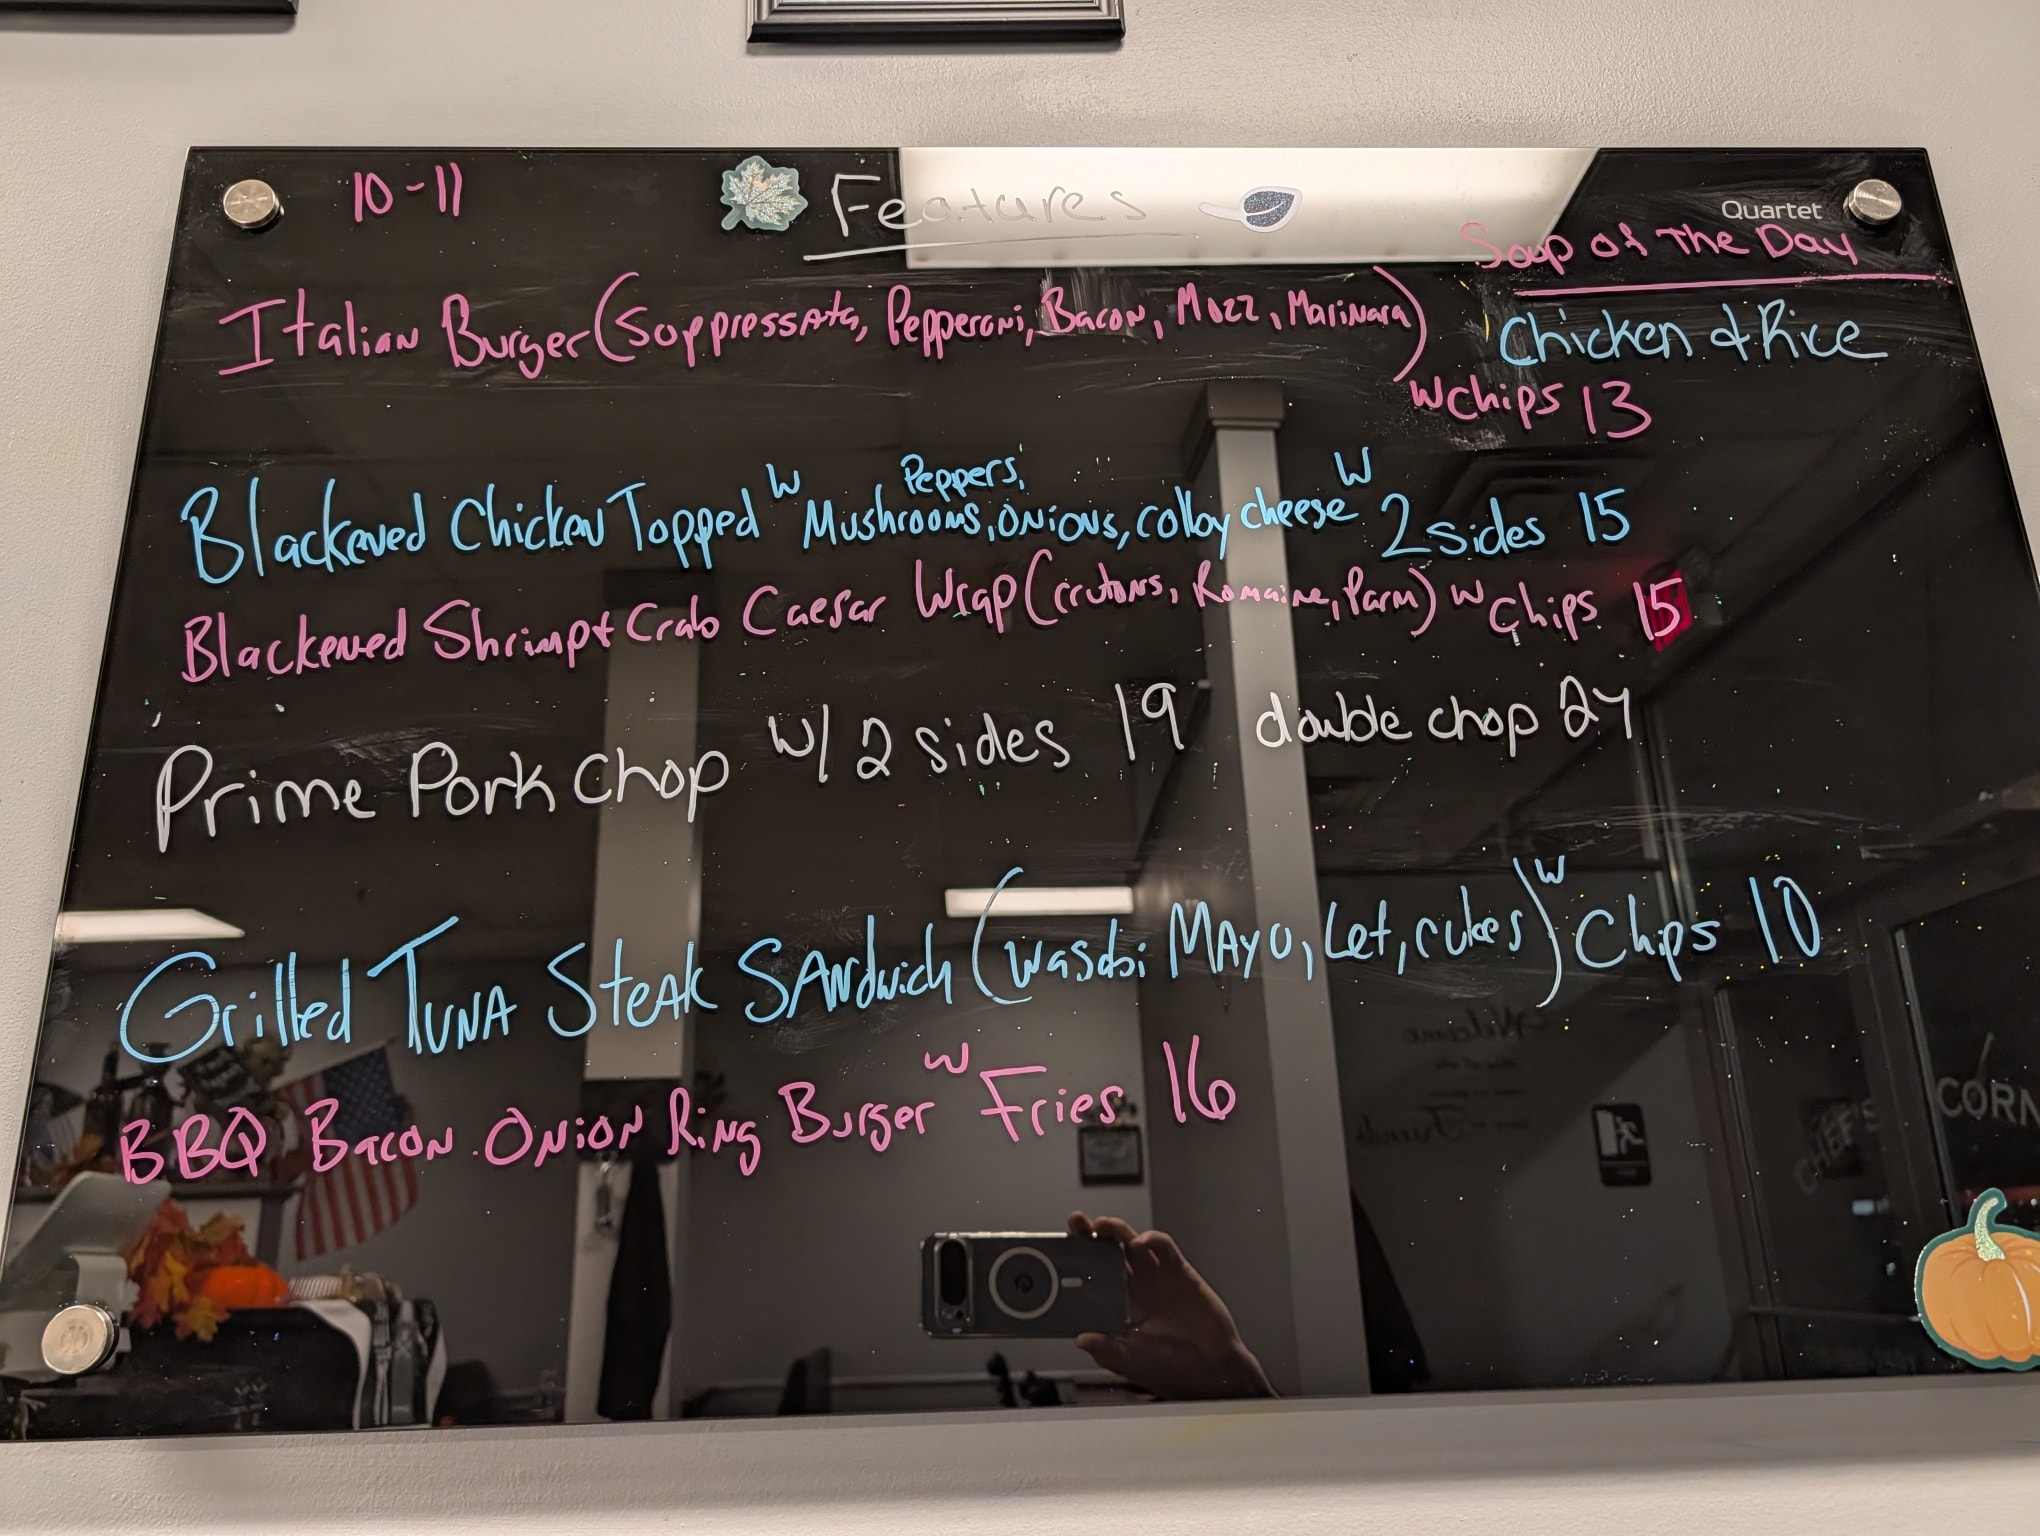 10-11
Features
Quartet
Soup of The Day
Chicken & Rice
Italian Burger (Soppressata, Pepperoni, Bacon, Mozz, Marinara)
w Chips 13
Blackened Chicken Topped w Peppers, Mushrooms, Onions, colby cheese w 2 sides 15
Blackened Shrimp + Crab Caesar Wrap (crutons, Romaine, Parm) w Chips 15
Prime Pork Chop w/ 2 sides 19 double chop 24
Grilled Tuna Steak Sandwich (wasabi Mayo, Let, cukes) w Chips 10
BBQ Bacon Onion Ring Burger w Fries 16
Welcome
Friends
CHEF'S
CORN